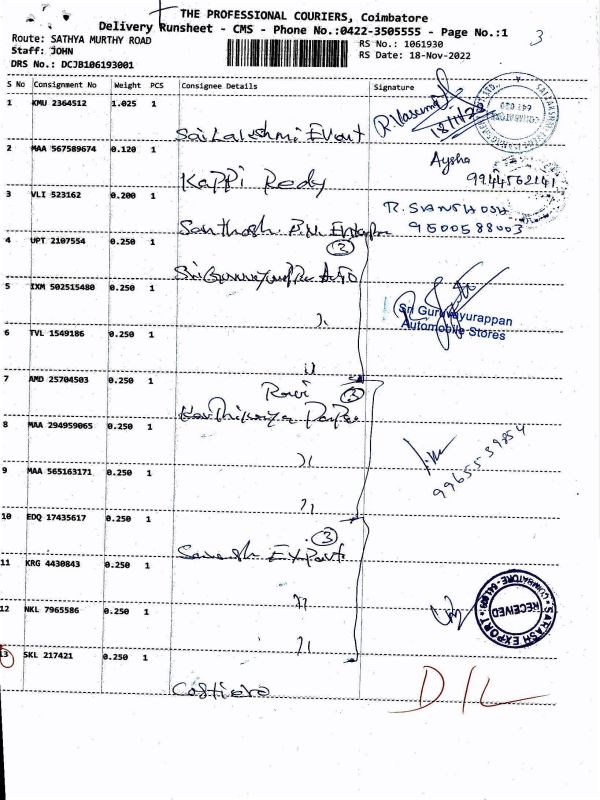 THE PROFESSIONAL COURIERS, Coimbatore
Delivery Runsheet - CMS - Phone No.:0422-3505555 - Page No.:1
3
Route: SATHYA MURTHY ROAD
Staff: JOHN
DRS No.: DCJB106193001
RS No.: 1061930
RS Date: 18-Nov-2022
S No Consignment No Weight PCS Consignee Details Signature
1 KMU 2364512 1.025 1
Sai Lakshmi Event
R. Vasu
18/11/22
2 MAA 567589674 0.120 1
Kappi Reddy
Aysha
9944562141
3 VLI 523162 0.200 1
Santhosh
R. SANTHOSH
9500588003
4 UPT 2107554 0.250 1
(2)
Sri Guruvayurappa Auto
5 IXM 502515480 0.250 1
Sri Guruvayurappan
Automobile Stores
6 TVL 1549186 0.250 1
7 AMD 25704503 0.250 1
(3)
8 MAA 294959065 0.250 1
9965539854
9 MAA 565163171 0.250 1
10 EDQ 17435617 0.250 1
(3)
Export
11 KRG 4430843 0.250 1
12 NKL 7965586 0.250 1
RECEIVED
EXPORT
COIMBATORE
13 SKL 217421 0.250 1
D/L